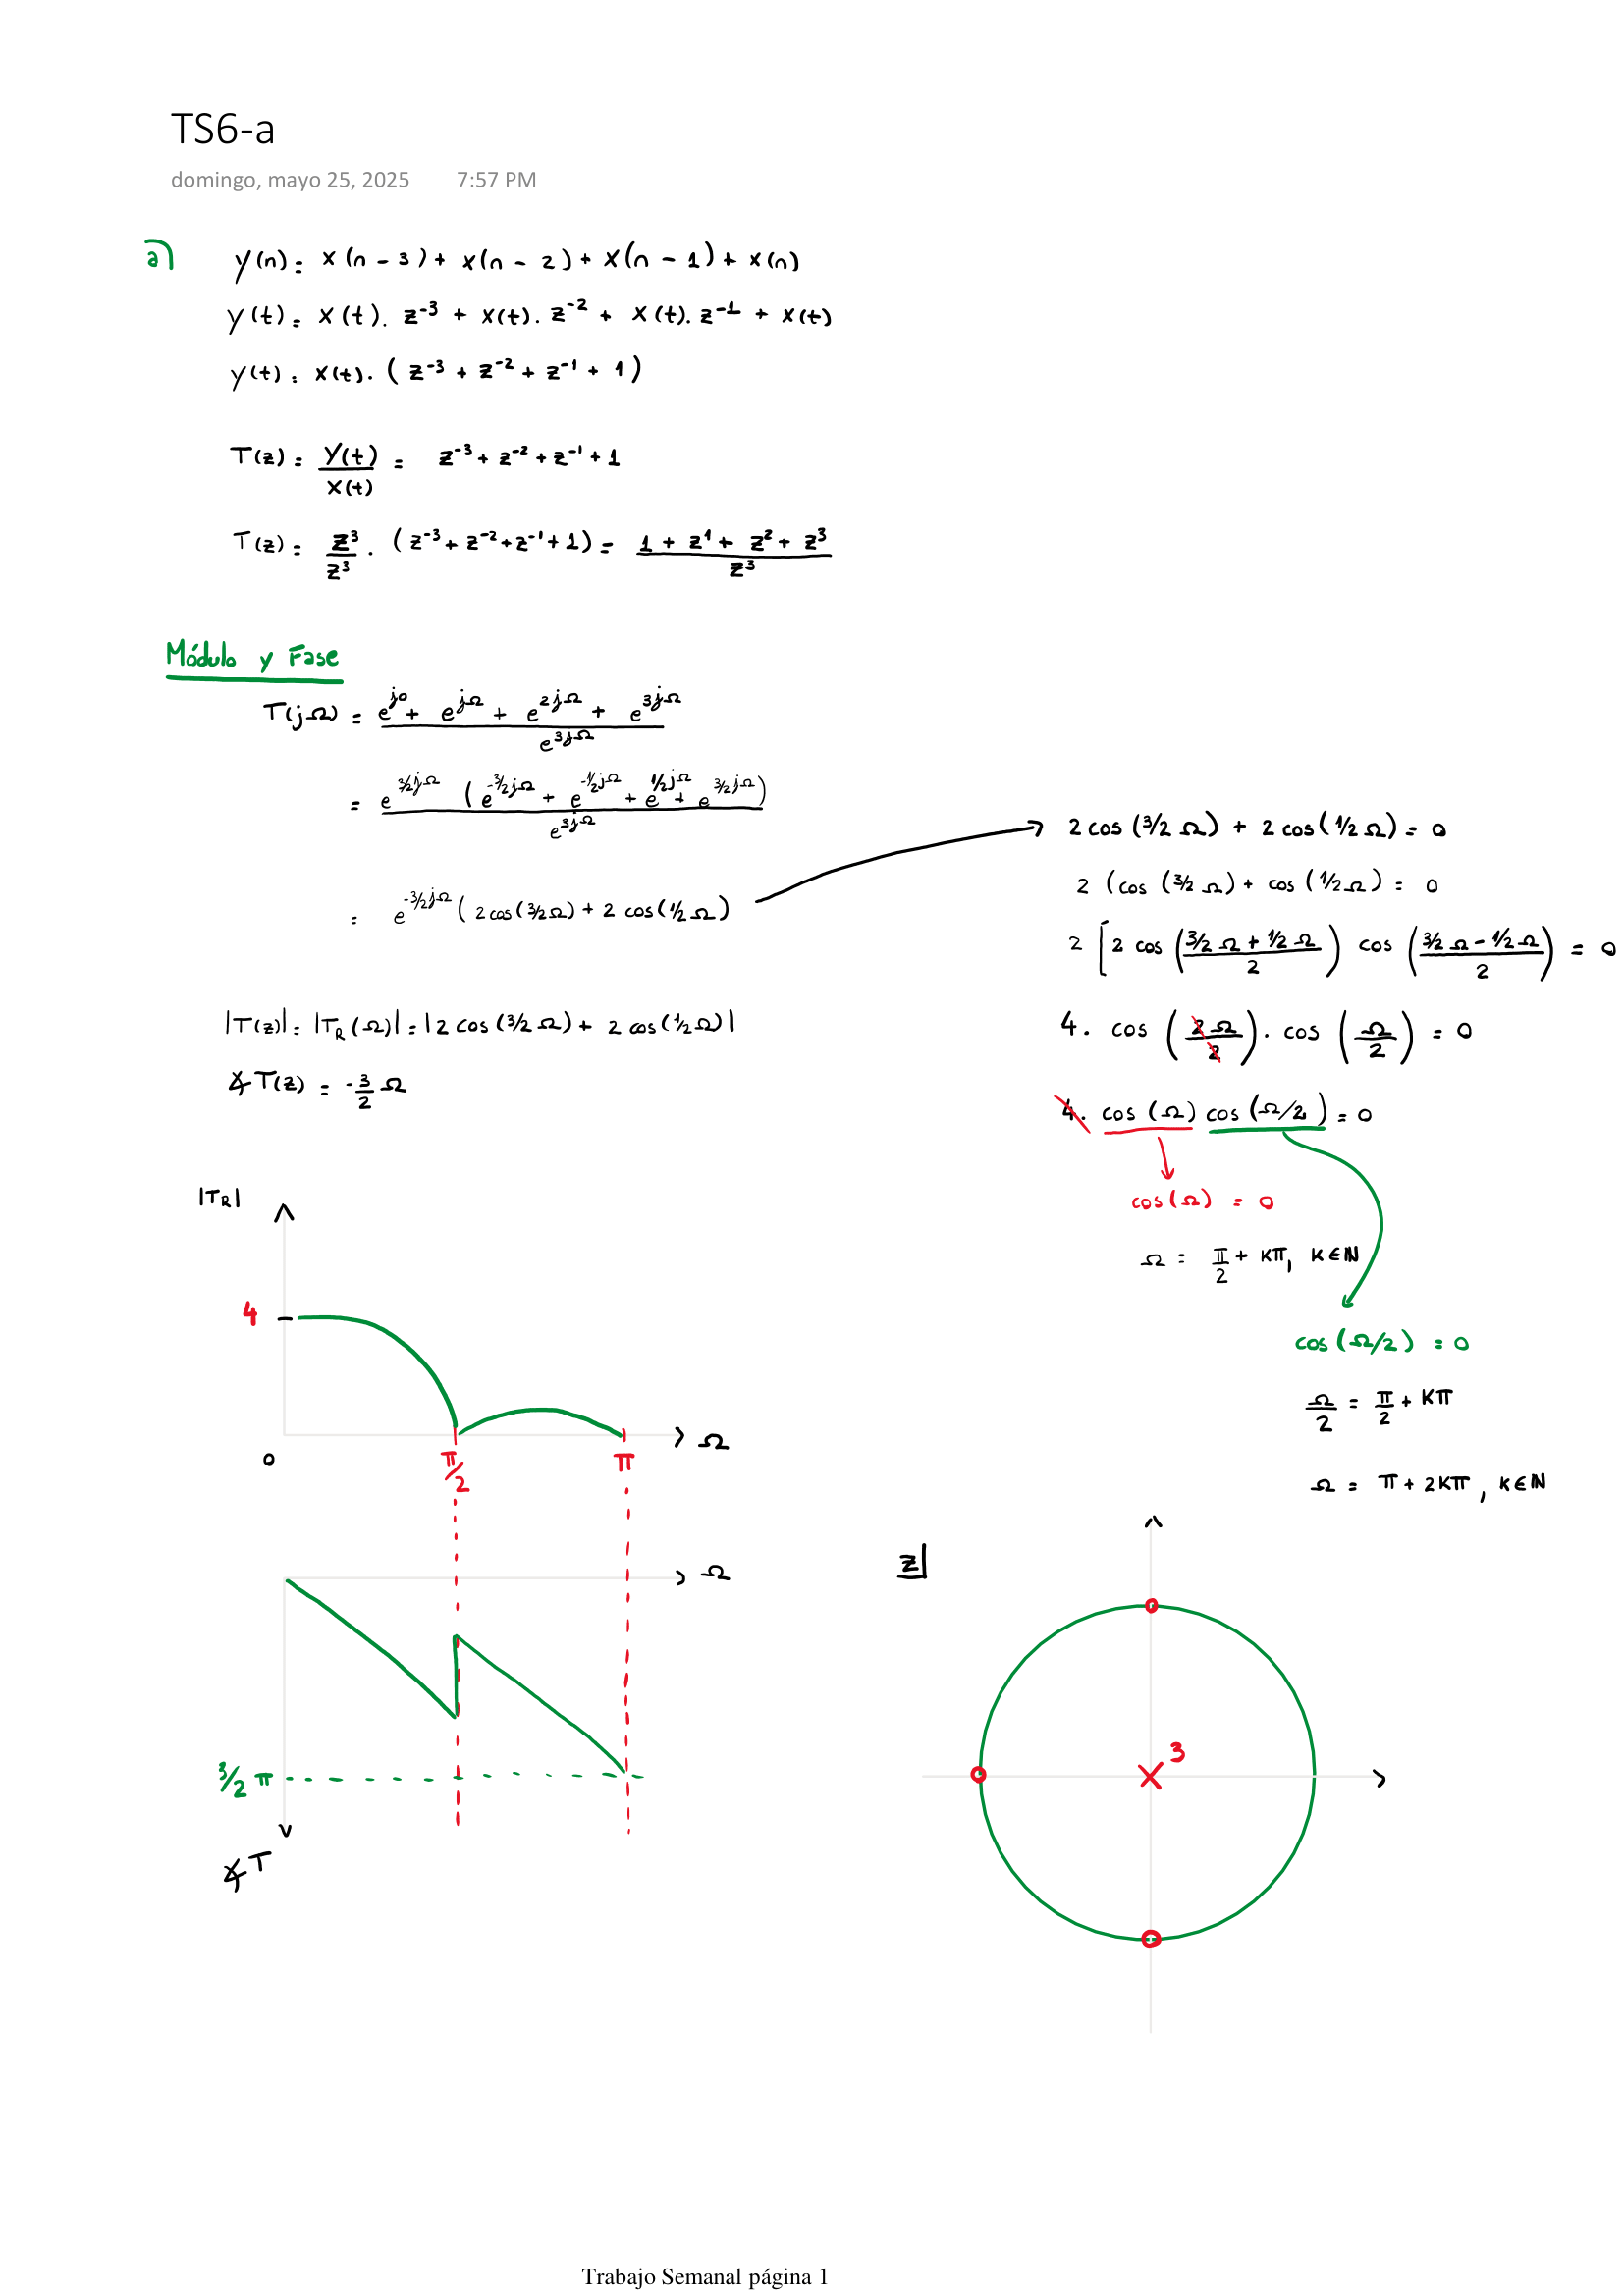 TS6-a
domingo, mayo 25, 2025 7:57 PM
a)
y(n) = x(n-3) + x(n-2) + x(n-1) + x(n)
y(t) = x(t). z⁻³ + x(t). z⁻² + x(t). z⁻¹ + x(t)
y(t) = x(t). (z⁻³ + z⁻² + z⁻¹ + 1)
T(z) = Y(t)/X(t) = z⁻³ + z⁻² + z⁻¹ + 1
T(z) = z³/z³ . (z⁻³ + z⁻² + z⁻¹ + 1) = (1 + z¹ + z² + z³)/z³
Módulo y Fase
T(jΩ) = (e^{j0} + e^{jΩ} + e^{2jΩ} + e^{3jΩ})/e^{3jΩ}
= e^{3/2jΩ} (e^{-3/2jΩ} + e^{-1/2jΩ} + e^{1/2jΩ} + e^{3/2jΩ})/e^{3jΩ}
= e^{-3/2jΩ} (2cos(3/2Ω) + 2cos(1/2Ω))
|T(z)| = |T_R(Ω)| = |2cos(3/2Ω) + 2cos(1/2Ω)|
∡T(z) = -3/2 Ω
2cos(3/2Ω) + 2cos(1/2Ω) = 0
2 (cos(3/2Ω) + cos(1/2Ω) = 0
2 [2 cos((3/2Ω + 1/2Ω)/2) cos((3/2Ω - 1/2Ω)/2) = 0
4. cos(2Ω/2). cos(Ω/2) = 0
4. cos(Ω) cos(Ω/2) = 0
cos(Ω) = 0
Ω = π/2 + Kπ, K∈ℕ
cos(Ω/2) = 0
Ω/2 = π/2 + Kπ
Ω = π + 2Kπ, K∈ℕ
|T_R|
4
0
π/2
π
Ω
Ω
3/2 π
∡T
z|
3
Trabajo Semanal página 1